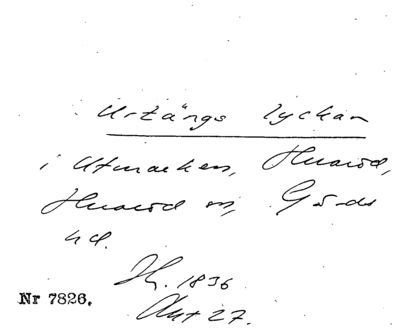 Urtängs lyckan
i Utmarken, Huaröd,
Huaröd sn, Gärds
hd.
Sk. 1836
Akt 27.
Nr 7826.